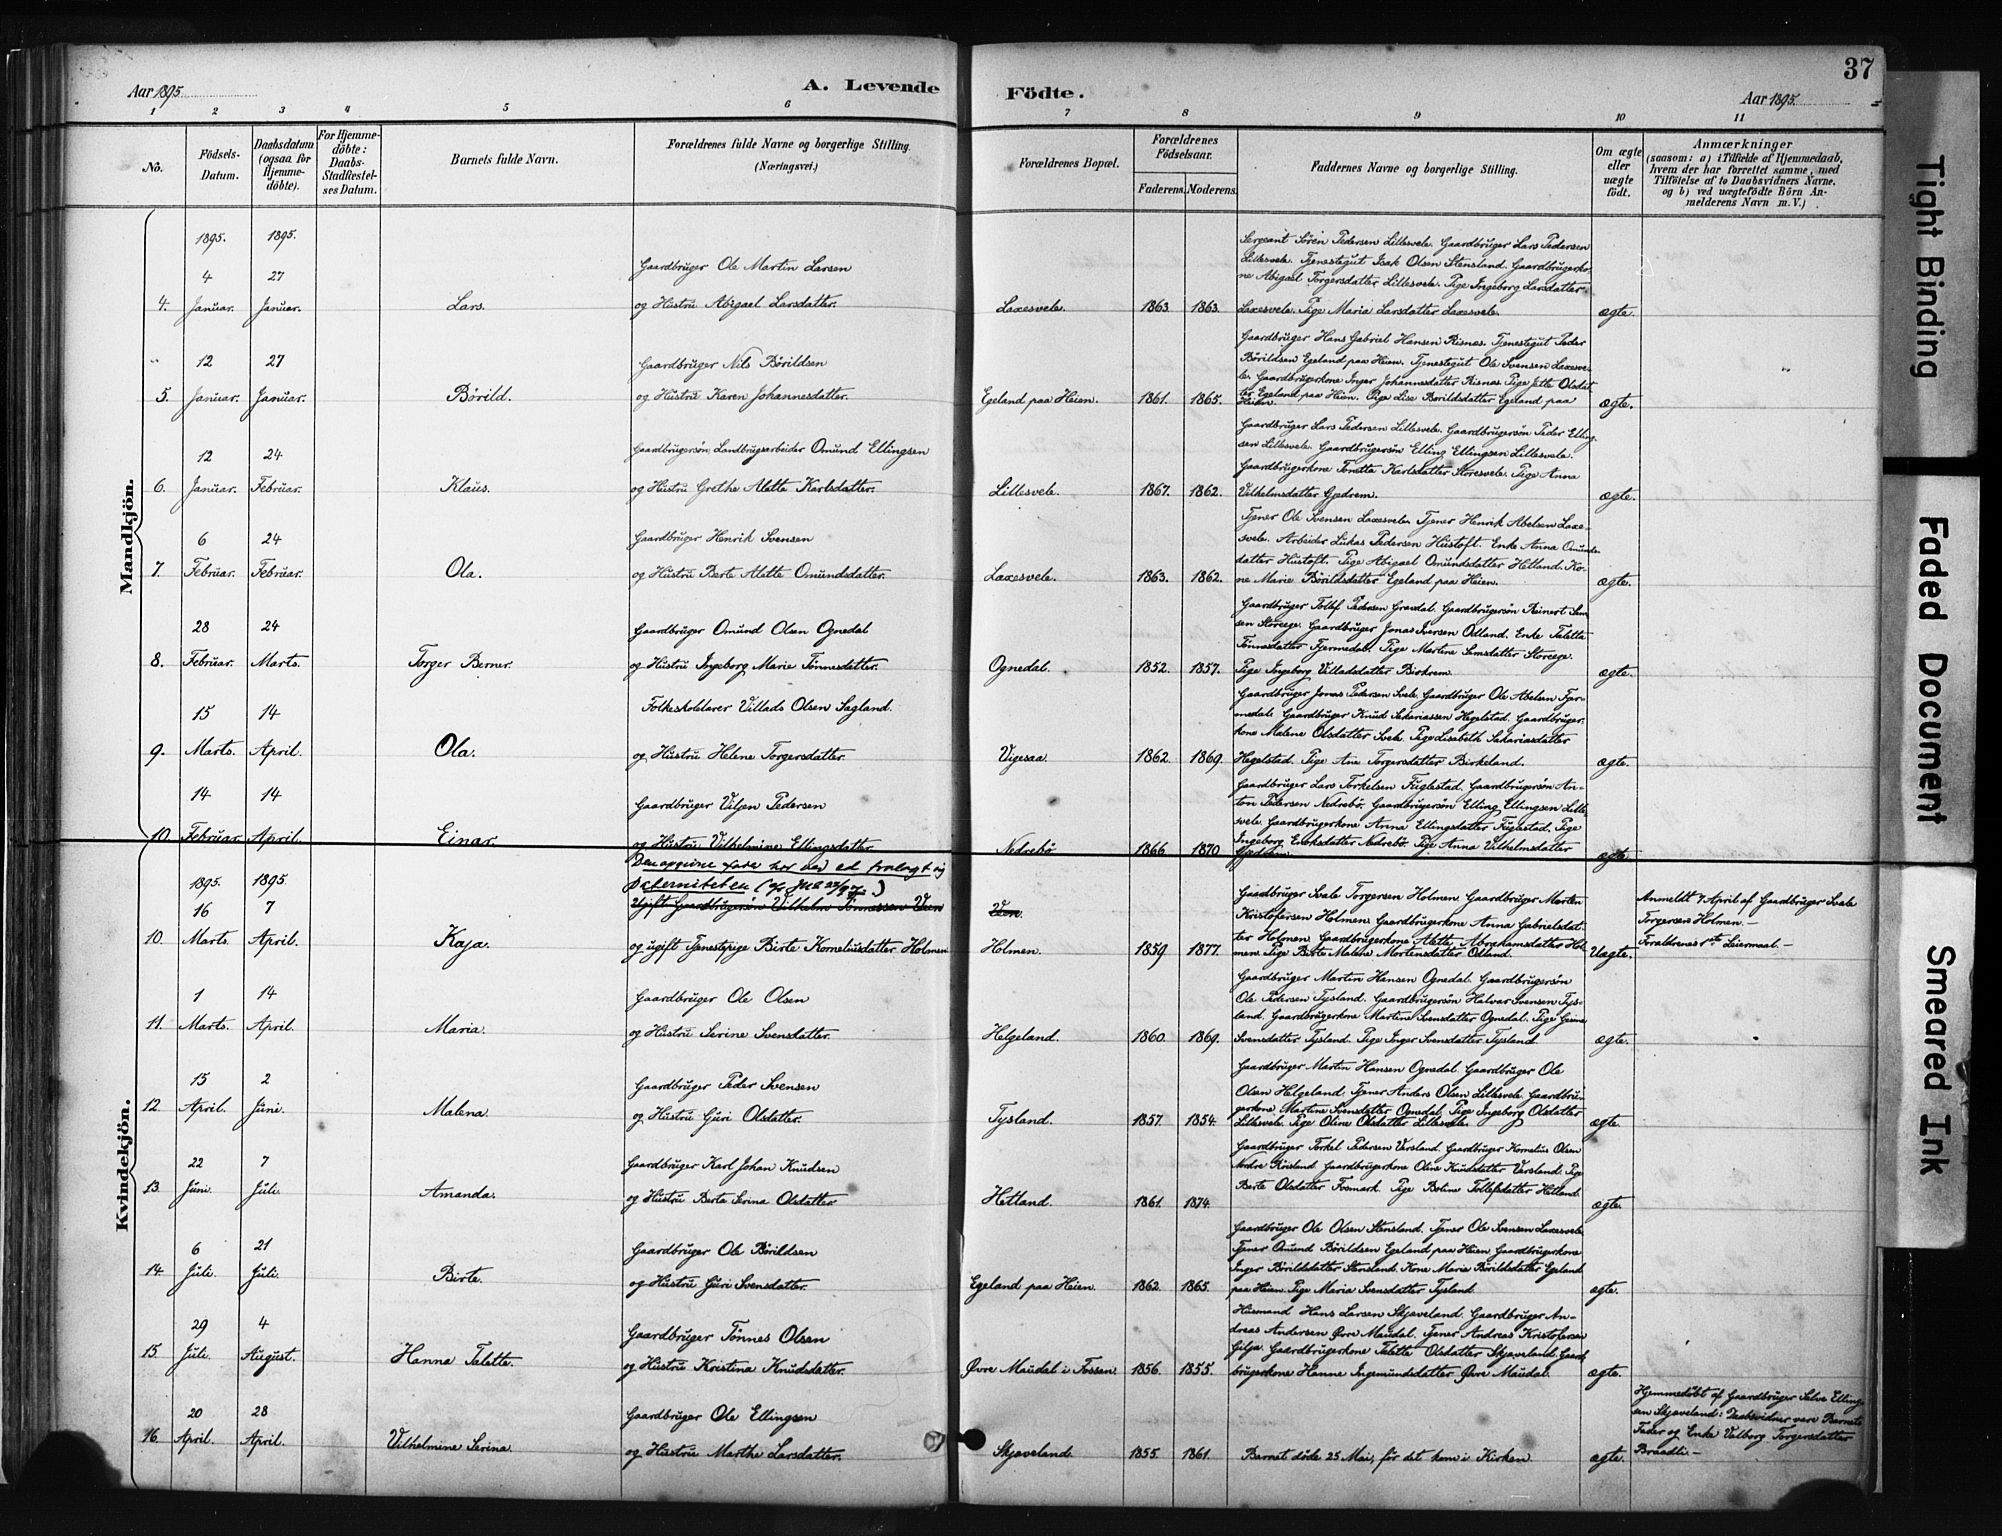 37
Aar 1895.
A. Levende
Födte.
Aar 1895.
1 2 3 4 5 6 7 8 9 10 11
No.
Födsels-
Datum.
Daabsdatum
(ogsaa for
Hjemme-
döbte).
For Hjemme-
döbte:
Daabs-
Stadfæstel-
ses Datum.
Barnets fulde Navn.
Forældrenes fulde Navne og borgerlige Stilling.
(Næringsvei.)
Forældrenes Bopæl.
Forældrenes
Födselsaar.
Faderens. Moderens.
Faddernes Navne og borgerlige Stilling.
Om ægte
eller
uægte
födt.
Anmærkninger
(saasom: a) i Tilfælde af Hjemmedaab,
hvem der har forrettet samme, med
Tilföielse af to Daabsvidners Navne,
og b) ved uægtefödte Börn An-
melderens Navn m. V.)
Mandkjön.
1895. 1895.
4 27
Gaardbruger Ole Martin Larsen
Sergeant Sören Pedersen Lillesvele. Gaardbruger Lars Pedersen
Lillesvele. Tjenestegut Isak Olsen Stensland. Gaardbrugerko-
ne Abigael Torgersdatter Lillesvele. Pige Ingeborg Larsdatter
4. Januar. Januar. Lars. og Hustru Abigael Larsdatter. Laxesvele. 1863. 1863. Laxesvele. Pige Maria Larsdatter Laxesvele. ægte.
12 27
Gaardbruger Nils Börildsen
Gaardbruger Hans Gabriel Hansen Risnes. Tjenestegut Peder
Börildsen Egeland paa Heien. Tjenestegut Ole Svensen Laxesve-
le. Gaardbrugerkone Inger Johannesdatter Risnes. Pige Jette Olsdat-
5. Januar. Januar. Börild. og Hustru Karen Johannesdatter. Egeland paa Heien. 1861. 1865. ter Egeland paa Heien. Pige Lise Börildsdatter Egeland paa
Heien. ægte.
12 24
Gaardbrugersön, Landbrugsarbeider Omund Ellingsen
Gaardbruger Lars Pedersen Lillesvele. Gaardbrugersön Peder Elling-
sen Lillesvele. Gaardbrugersön Elling Ellingsen Lillesvele.
Gaardbrugerkone Tonette Karlsdatter Storesvele. Pige Anna
6. Januar. Februar. Klaus. og Hustru Grethe Alette Karlsdatter. Lillesvele. 1867. 1862. Vilhelmsdatter Gjedrem. ægte.
6 24
Gaardbruger Henrik Svensen
Tjener Ole Svensen Laxesvele. Tjener Henrik Abelsen Laxe-
svele. Arbeider Lukas Pedersen Hustoft. Enke Anna Omunds-
datter Hustoft. Pige Abigael Omundsdatter Hetland. Ko-
7. Februar. Februar. Ola. og Hustru Berte Alette Omundsdatter. Laxesvele. 1863. 1862. ne Marie Börildsdatter Egeland paa Heien. ægte.
28 24
Gaardbruger Omund Olsen Ognedal
Gaardbruger Tollef Pedersen Gravdal. Gaardbrugersön Reinert Sem-
sen Storeege. Gaardbruger Jonas Iversen Ödland. Enke Talette
Tönnesdatter Fjermedal. Pige Martine Semsdatter Storeege.
8. Februar. Marts. Torger Berner. og Hustru Ingeborg Marie Tönnesdatter. Ognedal. 1852. 1857. Pige Ingeborg Villadsdatter Birkrem. ægte.
15 14
Folkeskolelærer Villads Olsen Sagland.
Gaardbruger Jonas Pedersen Svele. Gaardbruger Ole Abelsen Fjer-
medal. Gaardbruger Knud Sakariassen Hegelstad. Gaardbruger-
kone Malene Olsdatter Svele. Pige Lisabeth Sakariasdatter
9. Marts. April. Ola. og Hustru Helene Torgersdatter. Vigesaa. 1862. 1869. Hegelstad. Pige Ane Torgersdatter Birkeland. ægte.
14 14
Gaardbruger Viljen Pedersen
Gaardbruger Lars Torkelsen Fuglestad. Gaardbrugersön An-
ton Pedersen Nedrebö. Gaardbrugersön Elling Ellingsen Lille-
svele. Gaardbrugerkone Anna Ellingsdatter Fuglestad. Pige
10. Februar. April. Einar. og Hustru Vilhelmine Ellingsdatter. Nedrebö 1866 1870 Ingeborg Eriksdatter Nedrebö. Pige Anna Vilhelmsdatter
Gjedrem. ægte
Kvindekjön.
Den opgivne fader har ved ed fralagt sig
Paterniteten
1895. 1895.
16 7
Ugift Gaardbrugersön Vilhelm Tönnessen Veen
Veen.
Gaardbruger Svale Torgersen Holmen. Gaardbruger Morten
Kristofersen Holmen. Gaardbrugerkone Anna Gabrielsdat-
ter Holmen. Gaardbrugerkone Alette Abrahamsdatter Hol-
Anmeldt 7 April af Gaardbruger Svale
Torgersen Holmen. –
Forældrenes 1ste Leiermaal. –
10. Marts. April. Kaja. og ugift Tjenestepige Birte Korneliusdatter Holmen Holmen. 1859 1877. men. Pige Birte Malene Mortensdatter Ödland. Uægte.
1 14
Gaardbruger Ole Olsen
Gaardbruger Martin Hansen Ognedal. Gaardbrugersön
Ole Pedersen Tysland. Gaardbrugersön Halvar Svensen Tys-
land. Gaardbrugerkone Martine Svensdatter Ognedal. Pige Gurine
11. Marts. April. Maria. og Hustru Serine Svensdatter. Helgeland. 1860. 1869. Svensdatter Tysland. Pige Inger Svensdatter Tysland. ægte.
15 2
Gaardbruger Peder Svensen
Gaardbruger Martin Hansen Ognedal. Gaardbruger Ole
Olsen Helgeland. Tjener Anders Olsen Lillesvele. Gaardbru-
gerkone Martine Svensdatter Ognedal. Pige Ingeborg Olsdatter
12. April. Juni. Malena. og Hustru Guri Olsdatter. Tysland. 1857. 1854. Lillesvele. Pige Oline Olsdatter Lillesvele. ægte.
22 7
Gaardbruger Karl Johan Knudsen
Gaardbruger Torkel Pedersen Varsland. Gaardbruger Kornelius Olsen
Nedre Röisland. Gaardbrugerkone Oline Knudsdatter Varsland. Pige
Berte Olsdatter Fosmark. Pige Boline Tollefsdatter Hetland.
13. Juni. Juli. Amanda. og Hustru Berte Serina Olsdatter. Hetland. 1861. 1874. ægte.
6 21
Gaardbruger Ole Börildsen
Gaardbruger Ole Olsen Stensland. Tjener Ole Svensen Laxesvele.
Tjener Omund Börildsen Egeland paa Heien. Gaardbrugerkone
Inger Börildsdatter Stensland. Kone Maria Börildsdatter Egeland
14. Juli. Juli. Birte. og Hustru Guri Svensdatter. Egeland paa Heien. 1862. 1865. paa Heien. Pige Maria Svensdatter Tysland. ægte.
29 4
Gaardbruger Tönnes Olsen
Husmand Hans Larsen Skjæveland. Gaardbruger An-
dreas Andersen Øvre Maudal. Tjener Andreas Kristofersen
Gilja. Gaardbrugerkone Talette Olsdatter Skjæveland. Gaard-
15. Juli. August. Hanna Talette. og Hustru Kristina Knudsdatter. Øvre Maudal i Fossen. 1856. 1855. brugerkone Hanne Ingemundsdatter Øvre Maudal. ægte.
20 28
Gaardbruger Ole Ellingsen
Hjemmedöbt af Gaardbruger Salve Elling-
sen Skjæveland: Daabsvidner vare Barnets
Fader og Enke Valborg Torgersdatter
Braadli. –
16 April. April. Vilhelmine Serina. og Hustru Marthe Larsdatter. Skjæveland. 1855. 1861. Barnet döde 25 Mai, för det kom i Kirken. ægte.
Tight Binding
Faded Document
Smeared Ink